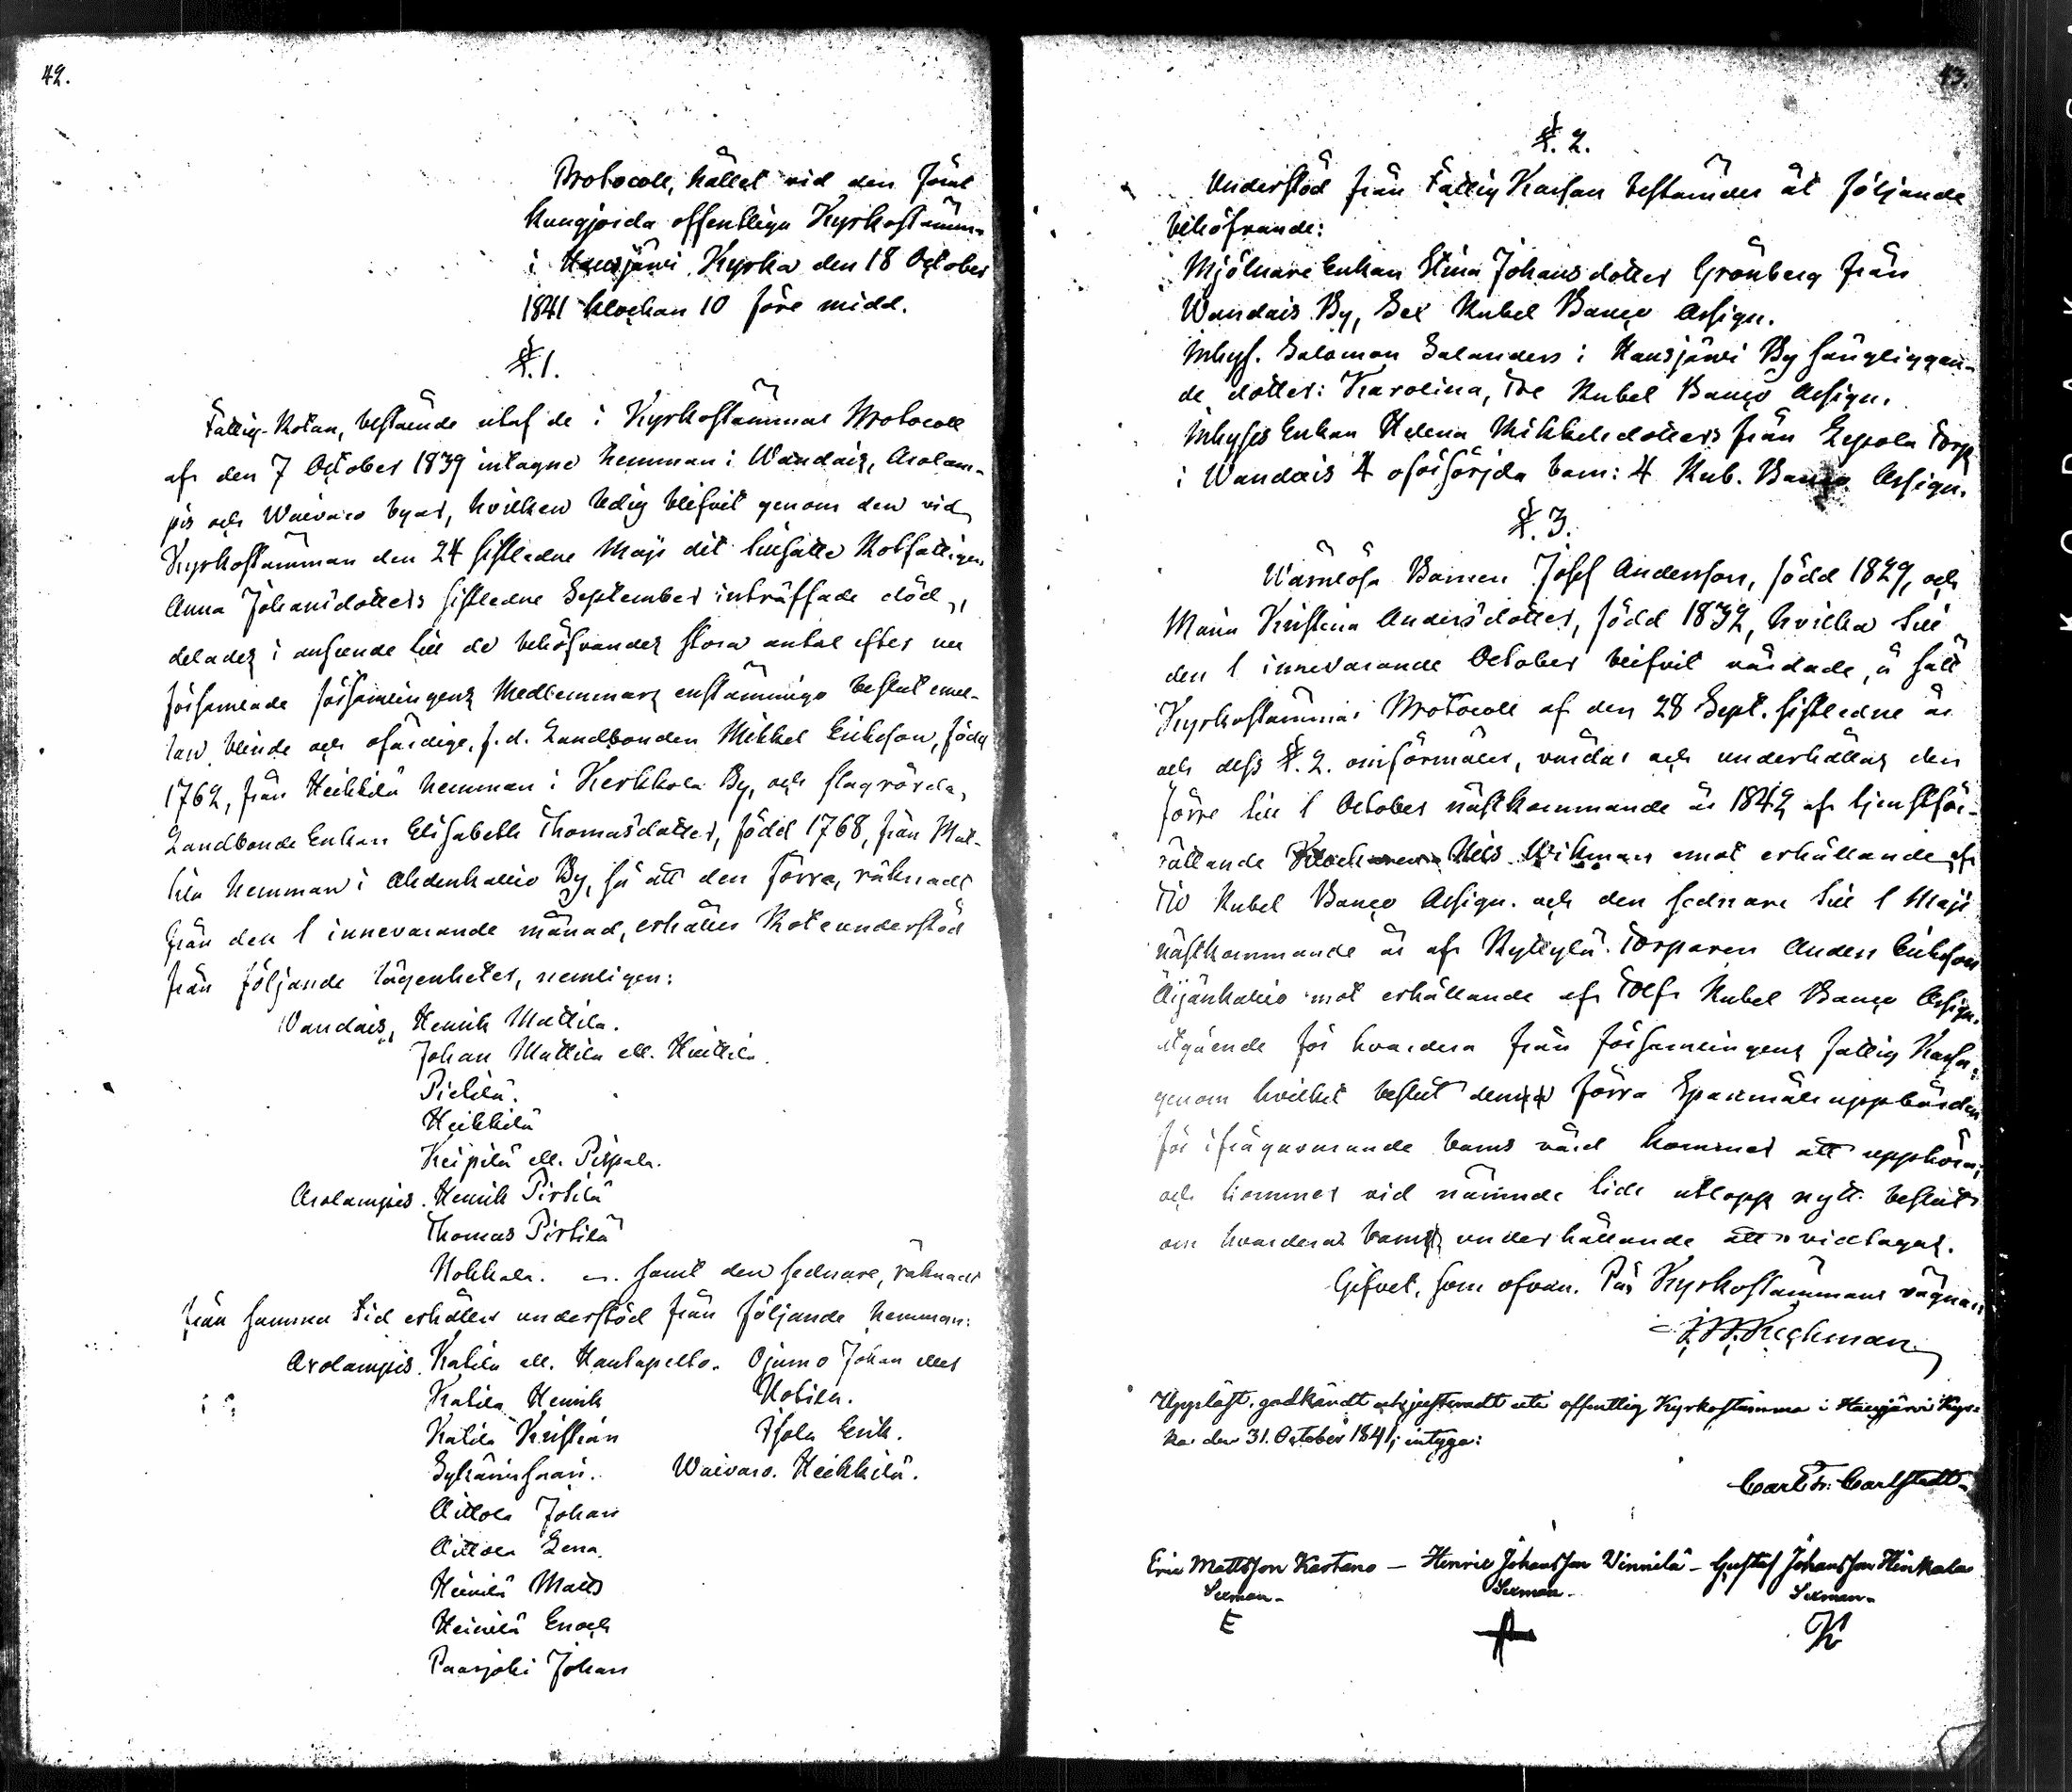 42.
Protocoll, hållet vid den förut
kungjorda offentliga Kyrkostämma
i Hausjärvi Kyrka den 18 October
1841 klockan 10 före midd.
§.1.
Fattig-Rotan, bestående utaf de i Kyrkostämmas Protocoll
af den 7 October 1839 intagne hemman i Wandais, Arolam-
pis och Waivaro byar, hvilken ledig blifvit genom den vid
Kyrkostämman den 24 sistledne Maji dit hufatte Rotfattigen
Anna Johansdotters sistledne September inträffade död,
delades i anseende till de behöfvandes stora antal efter nu
församlade församlingens Medlemmars enstämmiga beslut emel-
lan blinde och ofärdige, f.d. Landbonden Mikkel Erikson, född
1762, från Heikkilä hemman i Kerkkola By, och slagrörda,
Landbonde Enkan Elisabeth Thomasdotter, född 1768, från Mat-
tila hemman i Ahdenkallio By, så att den förra, räknadt
från den 1 innevarande månad, erhåller Roteunderstöd
från följande lägenheter, nemligen:
Wandais, Henrik Mattila.
Johan Mattila ell. Knuttila.
Pietilä.
Heikkilä
Keipilä ell. Pispala.
Arolampis. Henrik Pirtilä
Thomas Pirtilä
Nokkala. samt den sednare, räknadt
från samma tid erhåller understöd från följande hemman:
Arolampis. Katila ell. Hautapelto. Ojumo Johan eller
Katila Henrik Uotila.
Katila Kristian Isola Erik.
Sykärinsaari. Waivaro. Heikkilä.
Aittola Johan
Aittola Lena.
Heinilä Matts
Heinilä Enoch
Paarjoki Johan
43.
§. 2.
Understöd från Fattig Kassan bestämdes åt följande
behöfvande:
Mjölnare Enkan Stina Johansdotter Grönberg från
Wandais By, Sex Rubel Banco Assign.
Inhys. Salomon Salanders i Hausjärvi By sängliggan-
de dotter: Karolina, Tre Rubel Banco Assign.
Inhyses Enkan Helena Mikkelsdotters från Lepola Torp
i Wandais 4 oförsörjda barn: 4 Rub. Banco Assign.
§. 3.
Wärnlösa Barnen Josef Andersson, född 1829, och
Maria Kristina Andersdotter, född 1832, hvilka till
den 1 innevarande October blifvit vårdade, å sätt
Kyrkostämmas Protocoll af den 28 Sept. sistledne år
och dess §. 2. omförmäler, vårdas och underhållas den
förre till 1 October nästkommande år 1842 af tjenstför-
rättande Klockaren Nils Wikman emot erhållande af
Tio Rubel Banco Assign. och den sednare till 1 Maji
nästkommande år af Ryttylä Torparen Anders Erikson
Äijänkallio mot erhållande af Tolf Rubel Banco Assign.
utgående för hvardera från församlingens fattig Kassa,
genom hvilket beslut den förra Spannmåls uppbörden
för ifrågavarande barns vård kommer att upphöra,
och kommer vid nämnde tids utlopp nytt beslut
om hvarderas barns underhållande att vidtagas.
Gifvet, som ofvan. På Kyrkostämmans vägnar
Uppläst, godkändt och justeradt uti offentlig Kyrkostämma i Hausjärvi Kyr-
ka den 31. October 1841, intyga:
Carl Fr: Carlstedt.
Eric Mattsson Kartano – Henric Johansson Winnilä – Gustaf Johansson Hinkala
Sexman. Sexman. Sexman.
E K